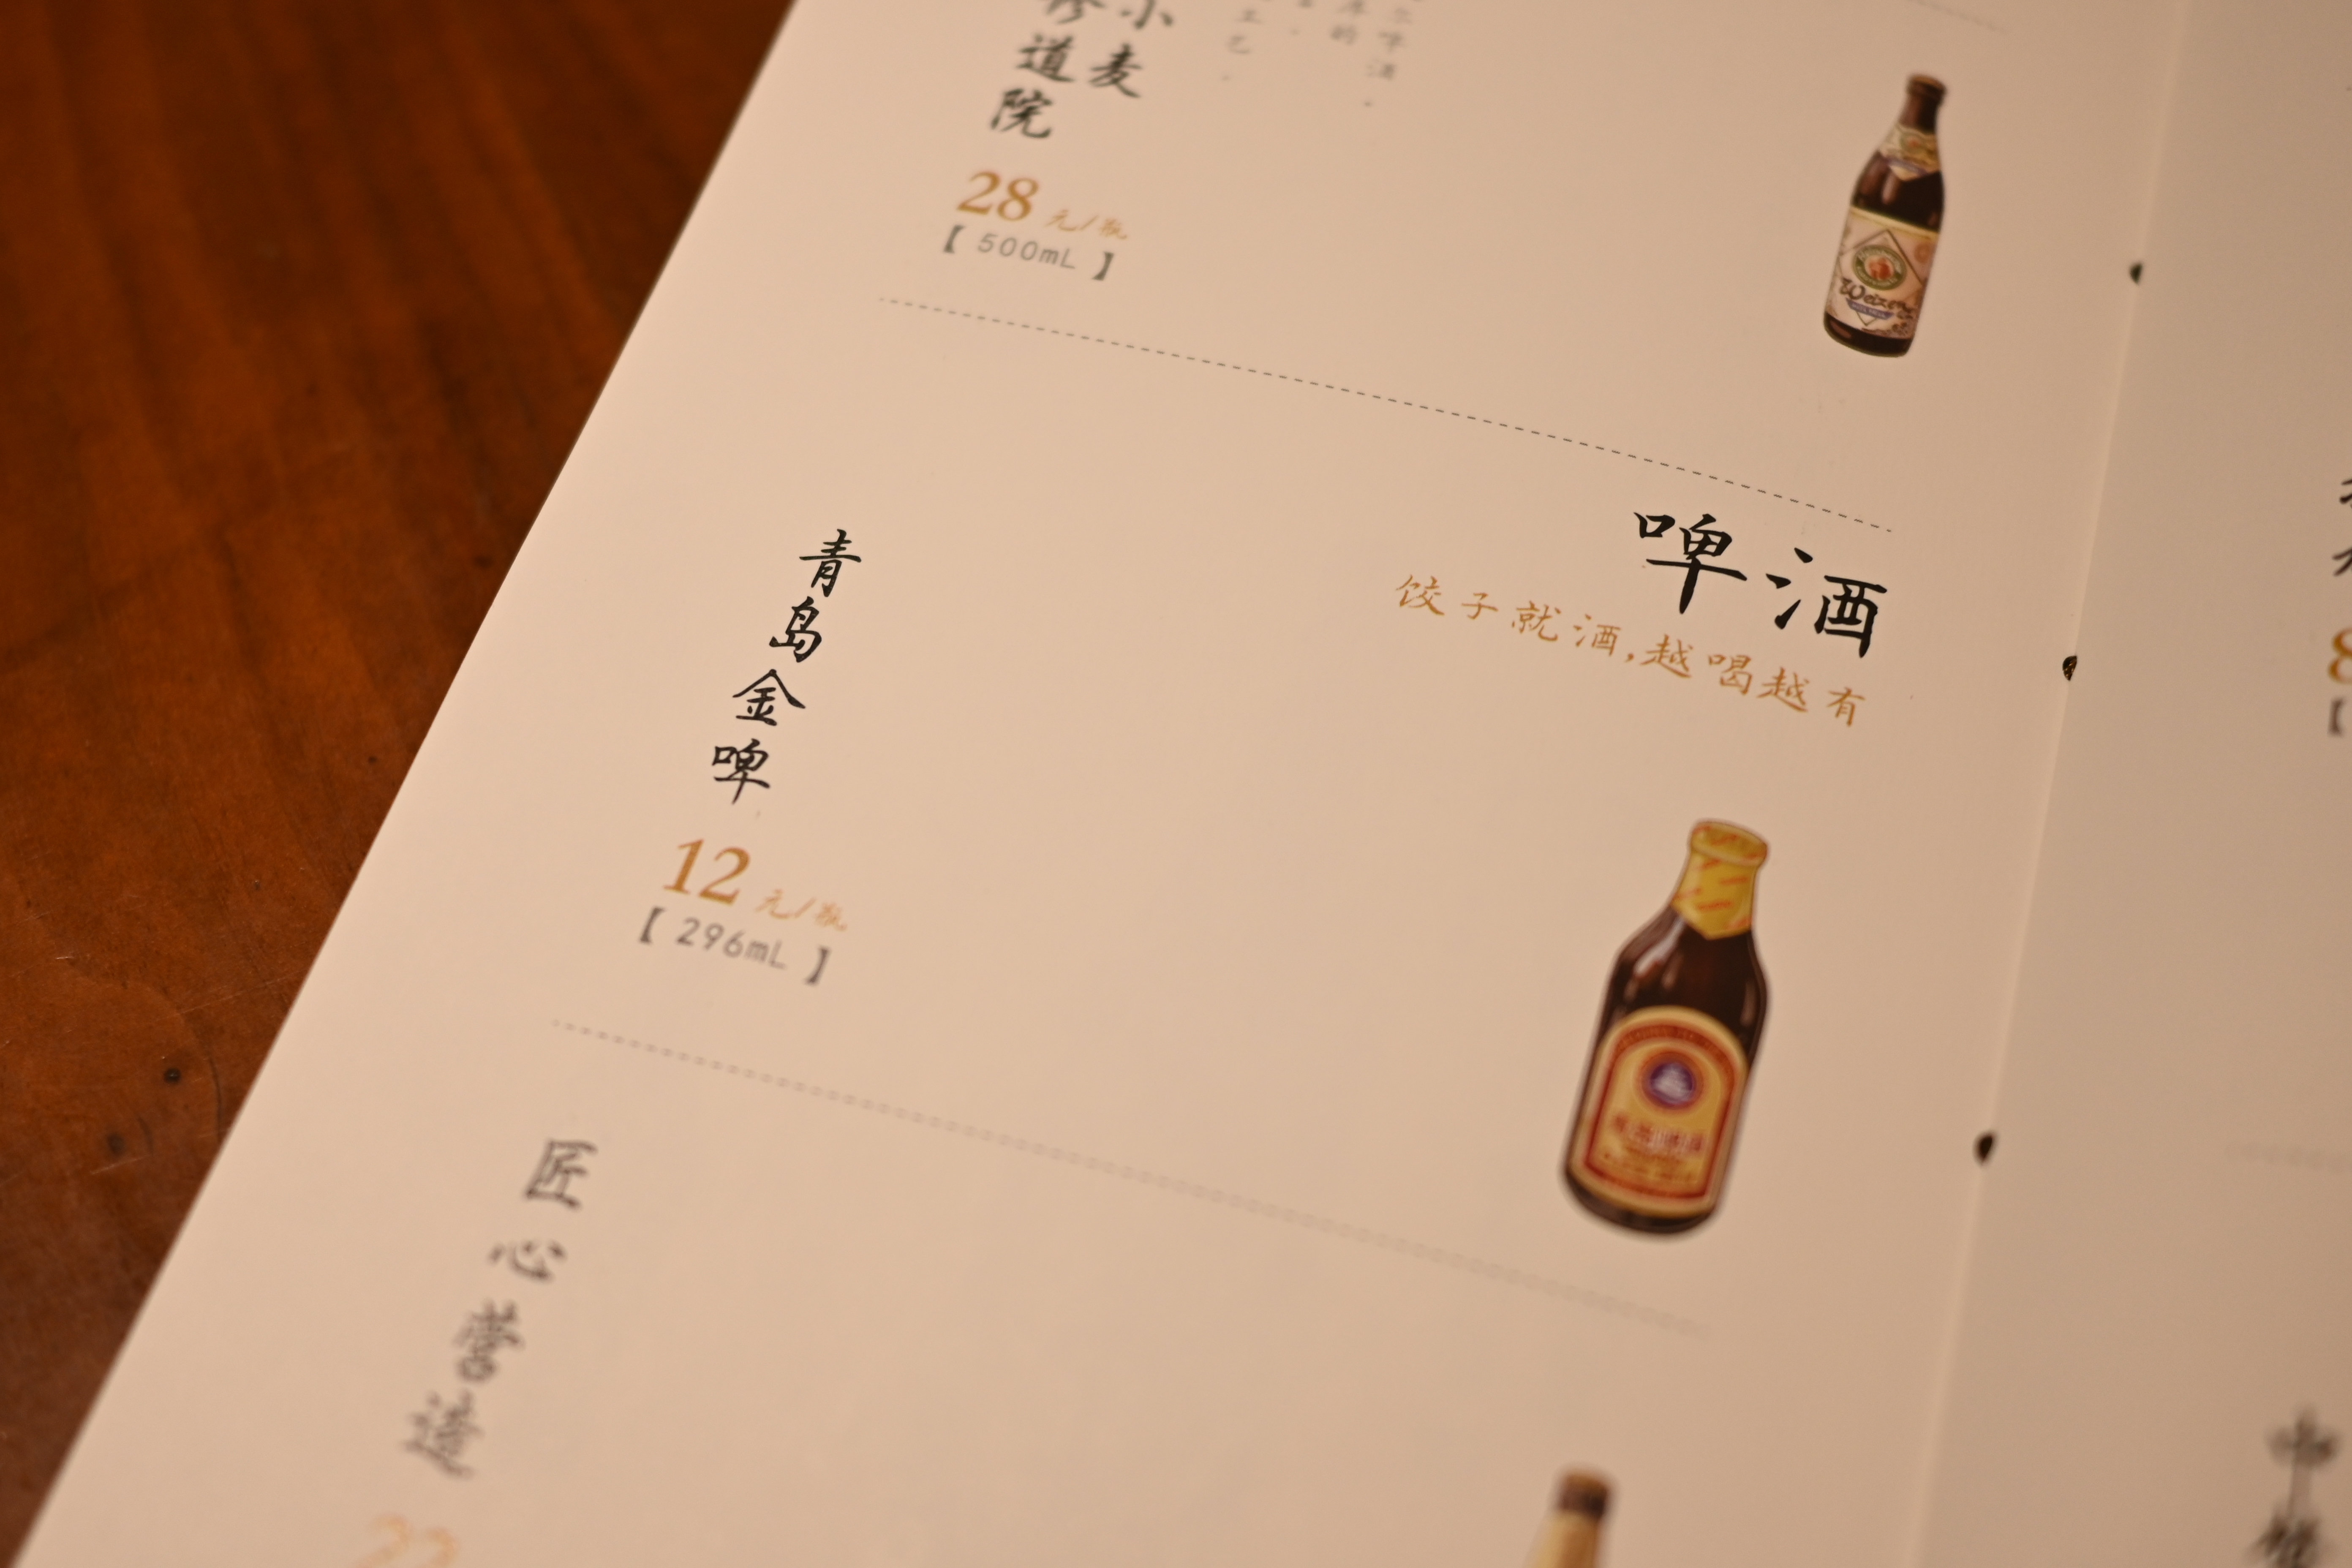 小麦
修道院
28元/瓶
【500mL】
Weizen
啤酒
饺子就酒,越喝越有
青岛金啤
12元/瓶
【296mL】
匠心营造
22